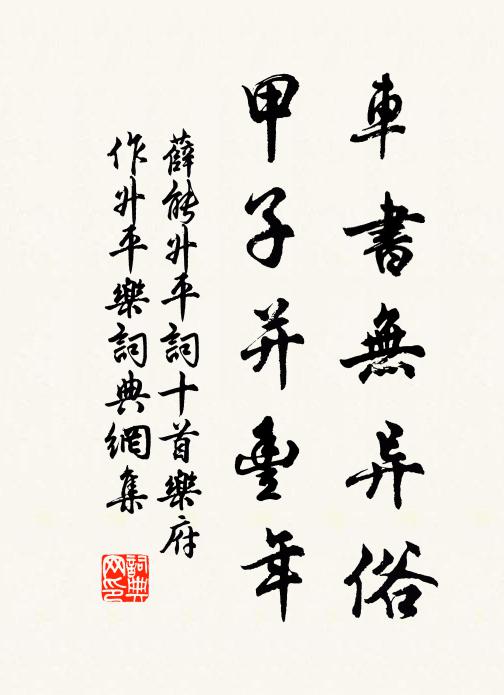 車書無异俗
甲子并豐年
薛能升平詞十首樂府
作升平樂詞典網集
詞典网印